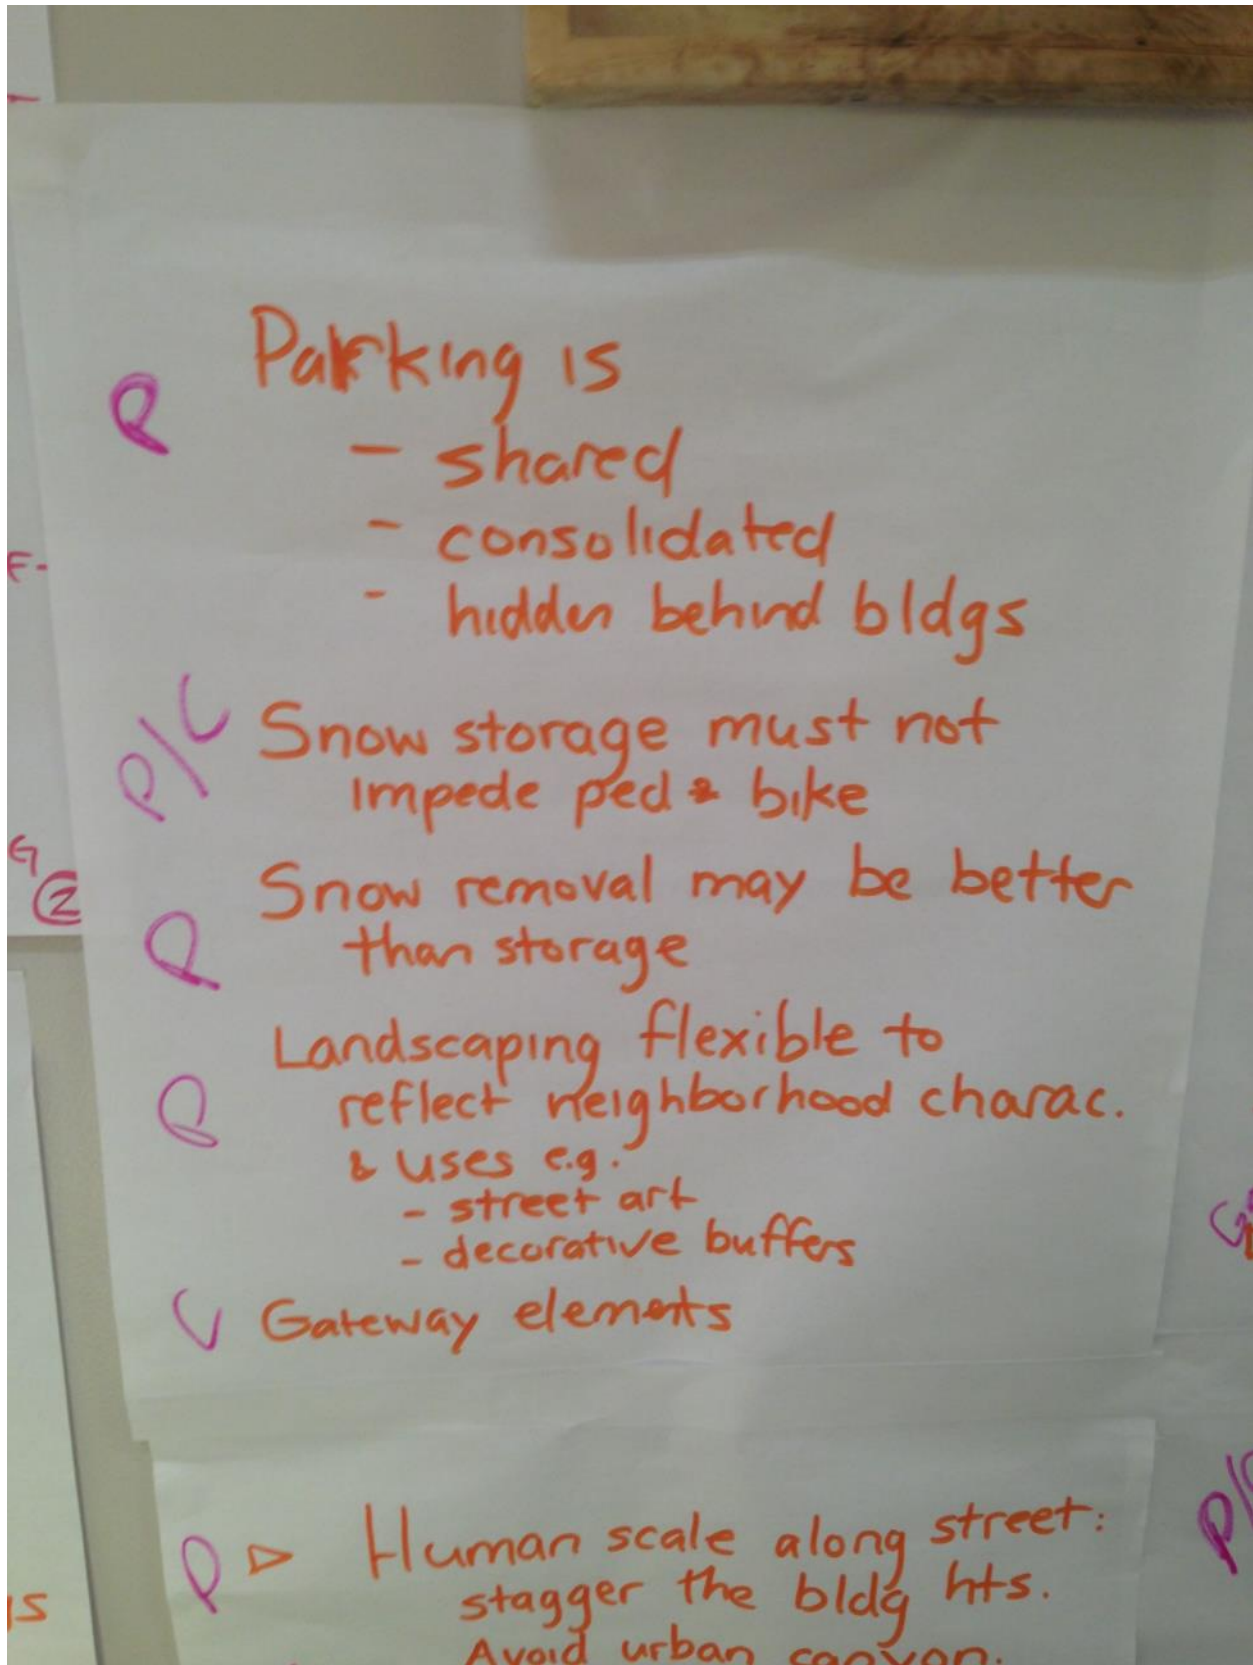 P
Parking is
- shared
- consolidated
- hidden behind bldgs
P/C Snow storage must not
impede ped & bike
Snow removal may be better
P than storage
Landscaping flexible to
P reflect neighborhood charac.
& uses e.g.
- street art
- decorative buffers
C Gateway elements
P ▷ Human scale along street:
stagger the bldg hts.
Avoid urban canyon.
F-
G
②
gs
P/